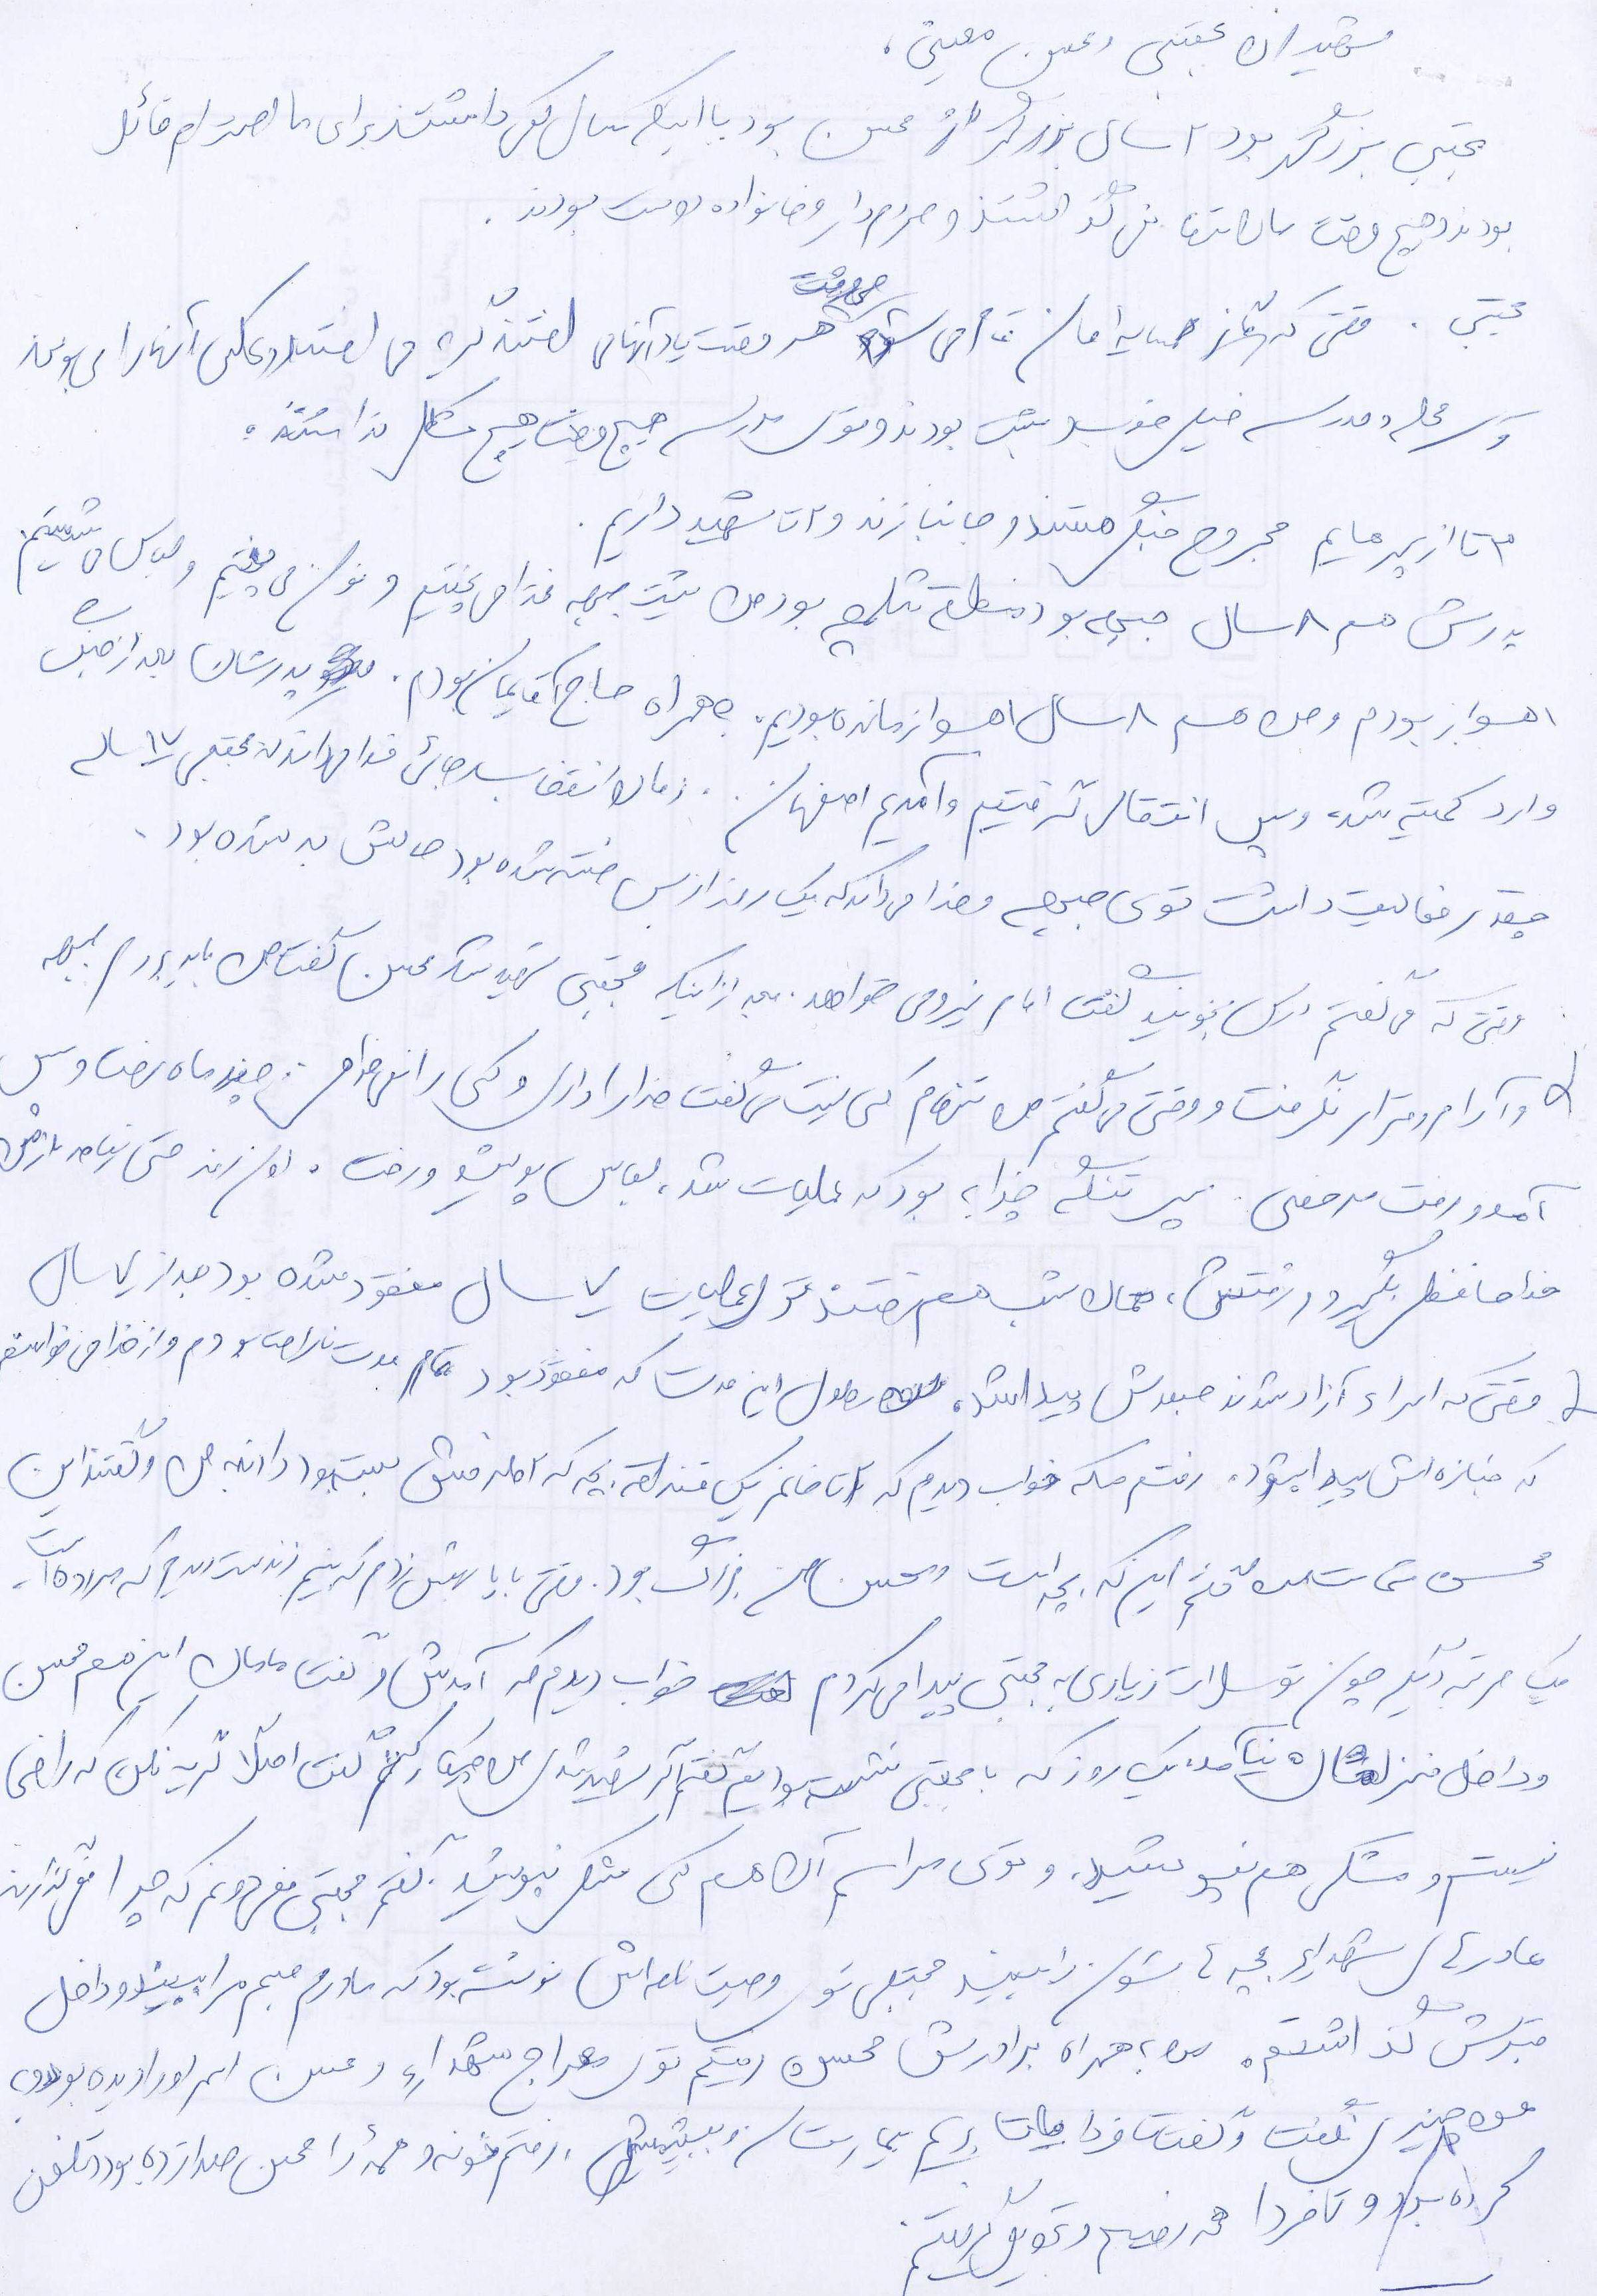 شهیدان مجتبی و محسن معینی.
مجتبی بزرگتر بود ۲ سال بزرگتر از محسن بود با اینکه سال کمی داشتند برای ما احترام قائل
بودند و هیچ وقت ما را تنها نمی گذاشتند و مردم دار و خانواده دوست بودند.
مجتبی. وقتی که نماز همسایه امان تمام می شود هر وقت یاد آنها می افتند گریه می افتند و عکس آنها را می بوسند
توی محله و مدرسه خیلی خوب و مثبت بودند و توی مدرسه هیچ وقت هیچ مشکلی نداشتند.
۳ تا از پسرهایم مجروح جنگی هستند و جانبازند و ۲ تا شهید داریم.
پدرش هم ۸ سال جبهه بود منطقه شلمچه بود من پشت جبهه غذا می پختیم و نون می پختیم و لباس می شستیم
اهواز بودم و من هم ۸ سال اهواز مانده بودیم. به همراه حاج آقایمان بودم. پدرشان بعد از جنگ
وارد کمیته شد، و سپس انتقالی گرفتیم و آمدیم اصفهان. زمان انقلاب خدا می داند که مجتبی ۱۷ ساله
چقدر فعالیت داشت توی جبهه و خدا می داند که یک روز از بس خسته شده بود حالش بد شده بود.
وقتی که می گفتم درس بخونید گفت امام نیرو می خواهد. بعد از اینکه مجتبی شهید شد محسن گفت من باید بروم جبهه
و آرام و قرار نگرفت و وقتی می گفتم من تنهام کسی نیست می گفت خدا را داری و کسی را نمی خواهی. چند ماه رفت و سپس
آمد و رفت مرخصی. سپس تنگه چزابه بود که عملیات شد، لباس پوشید و رفت. اون روز حتی نیامد با من
خداحافظی بگیرد و رفتش، همان شب هم رفتند تو عملیات ۷ سال مفقود شده بود بعد از ۷ سال
وقتی که اسراء آزاد شدند جسدش پیدا شد. طول این مدت که مفقود بود تمام مدت ناراحت بودم و از خدا می خواستم
که جنازه اش پیدا بشود. رفتم مکه خواب دیدم که ۲ تا خانم یک قنداقه بچه که اطرافش بسته بود دادند به من و گفتند این
محسن شماست من گفتم این که بچه است و محسن من بزرگ بود. وقتی با پا بهش زدم که ببینم زنده ست دیدم که مرده است.
یک مرتبه دیگر چون توسلات زیادی به مجتبی پیدا می کردم خواب دیدم که آمدش و گفت مامان این هم محسن
و داخل منزلمان نیامد. یک روز که با مجتبی نشسته بودیم گفتم اگر شهید شدی من چیکار کنم گفت اصلا گریه نکن که راضی
نیستم و مشکی هم نپوشید، و توی مراسم آن هم کسی مشکی نپوشید. گفتم مجتبی نمی دونم که چرا نمی گذارند
مادرهای شهدا بچه هاشون را ببینند مجتبی توی وصیت نامه اش نوشته بود که مادرم جسم مرا ببیند و داخل
قبرش گذاشتم. من به همراه برادرش محسن رفتیم توی معراج شهدا و محسن اسم او را دیده بود و به
من چیزی نگفت و گفت فردا بیا بریم بیمارستان و ببینیمش. رفتم خونه و همه را محسن صدا زده بود و تلفن
کرده بود و تا فردا که رفتیم و تحویل گرفتیم.